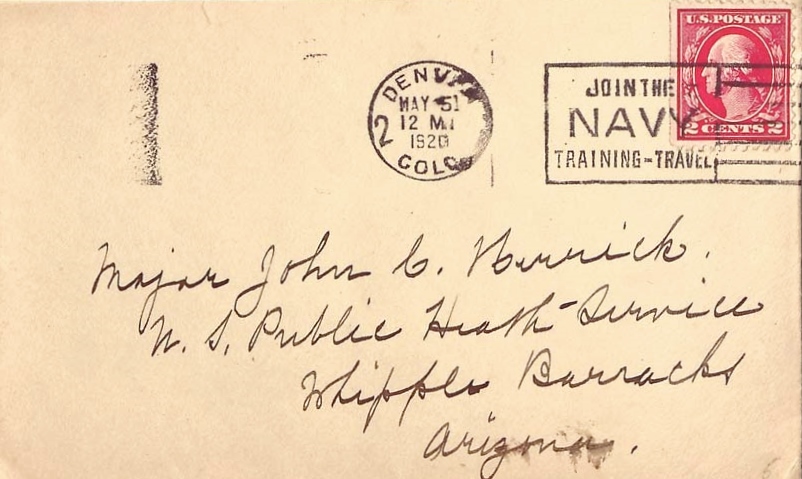 U.S. POSTAGE
2 CENTS 2
DENV
MAY 51
12 M
1920
2
COLO
JOIN THE
NAVY
TRAINING-TRAVEL
Major John C. Herrick.
U. S. Public Heath-Service
Whipple Barracks
Arizona.